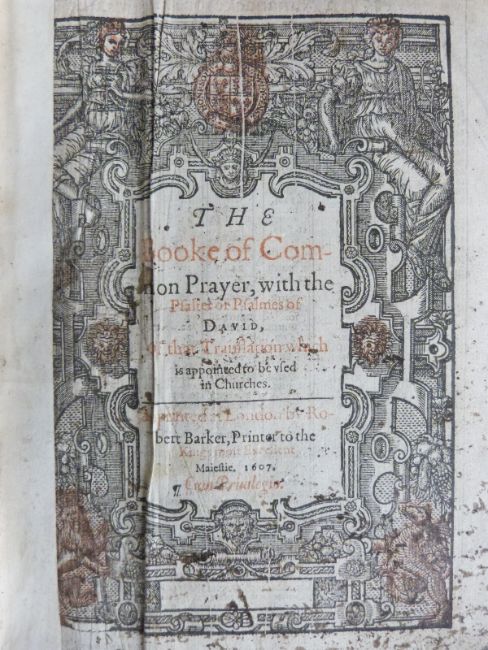 THE
Booke of Com-
mon Prayer, with the
Psalter or Psalmes of
DAVID,
of that Translation which
is appointed to be vsed
in Churches.
Imprinted at London by Ro-
bert Barker, Printer to the
Kings most Excellent
Maiestie. 1607.
Cum Priuilegio.